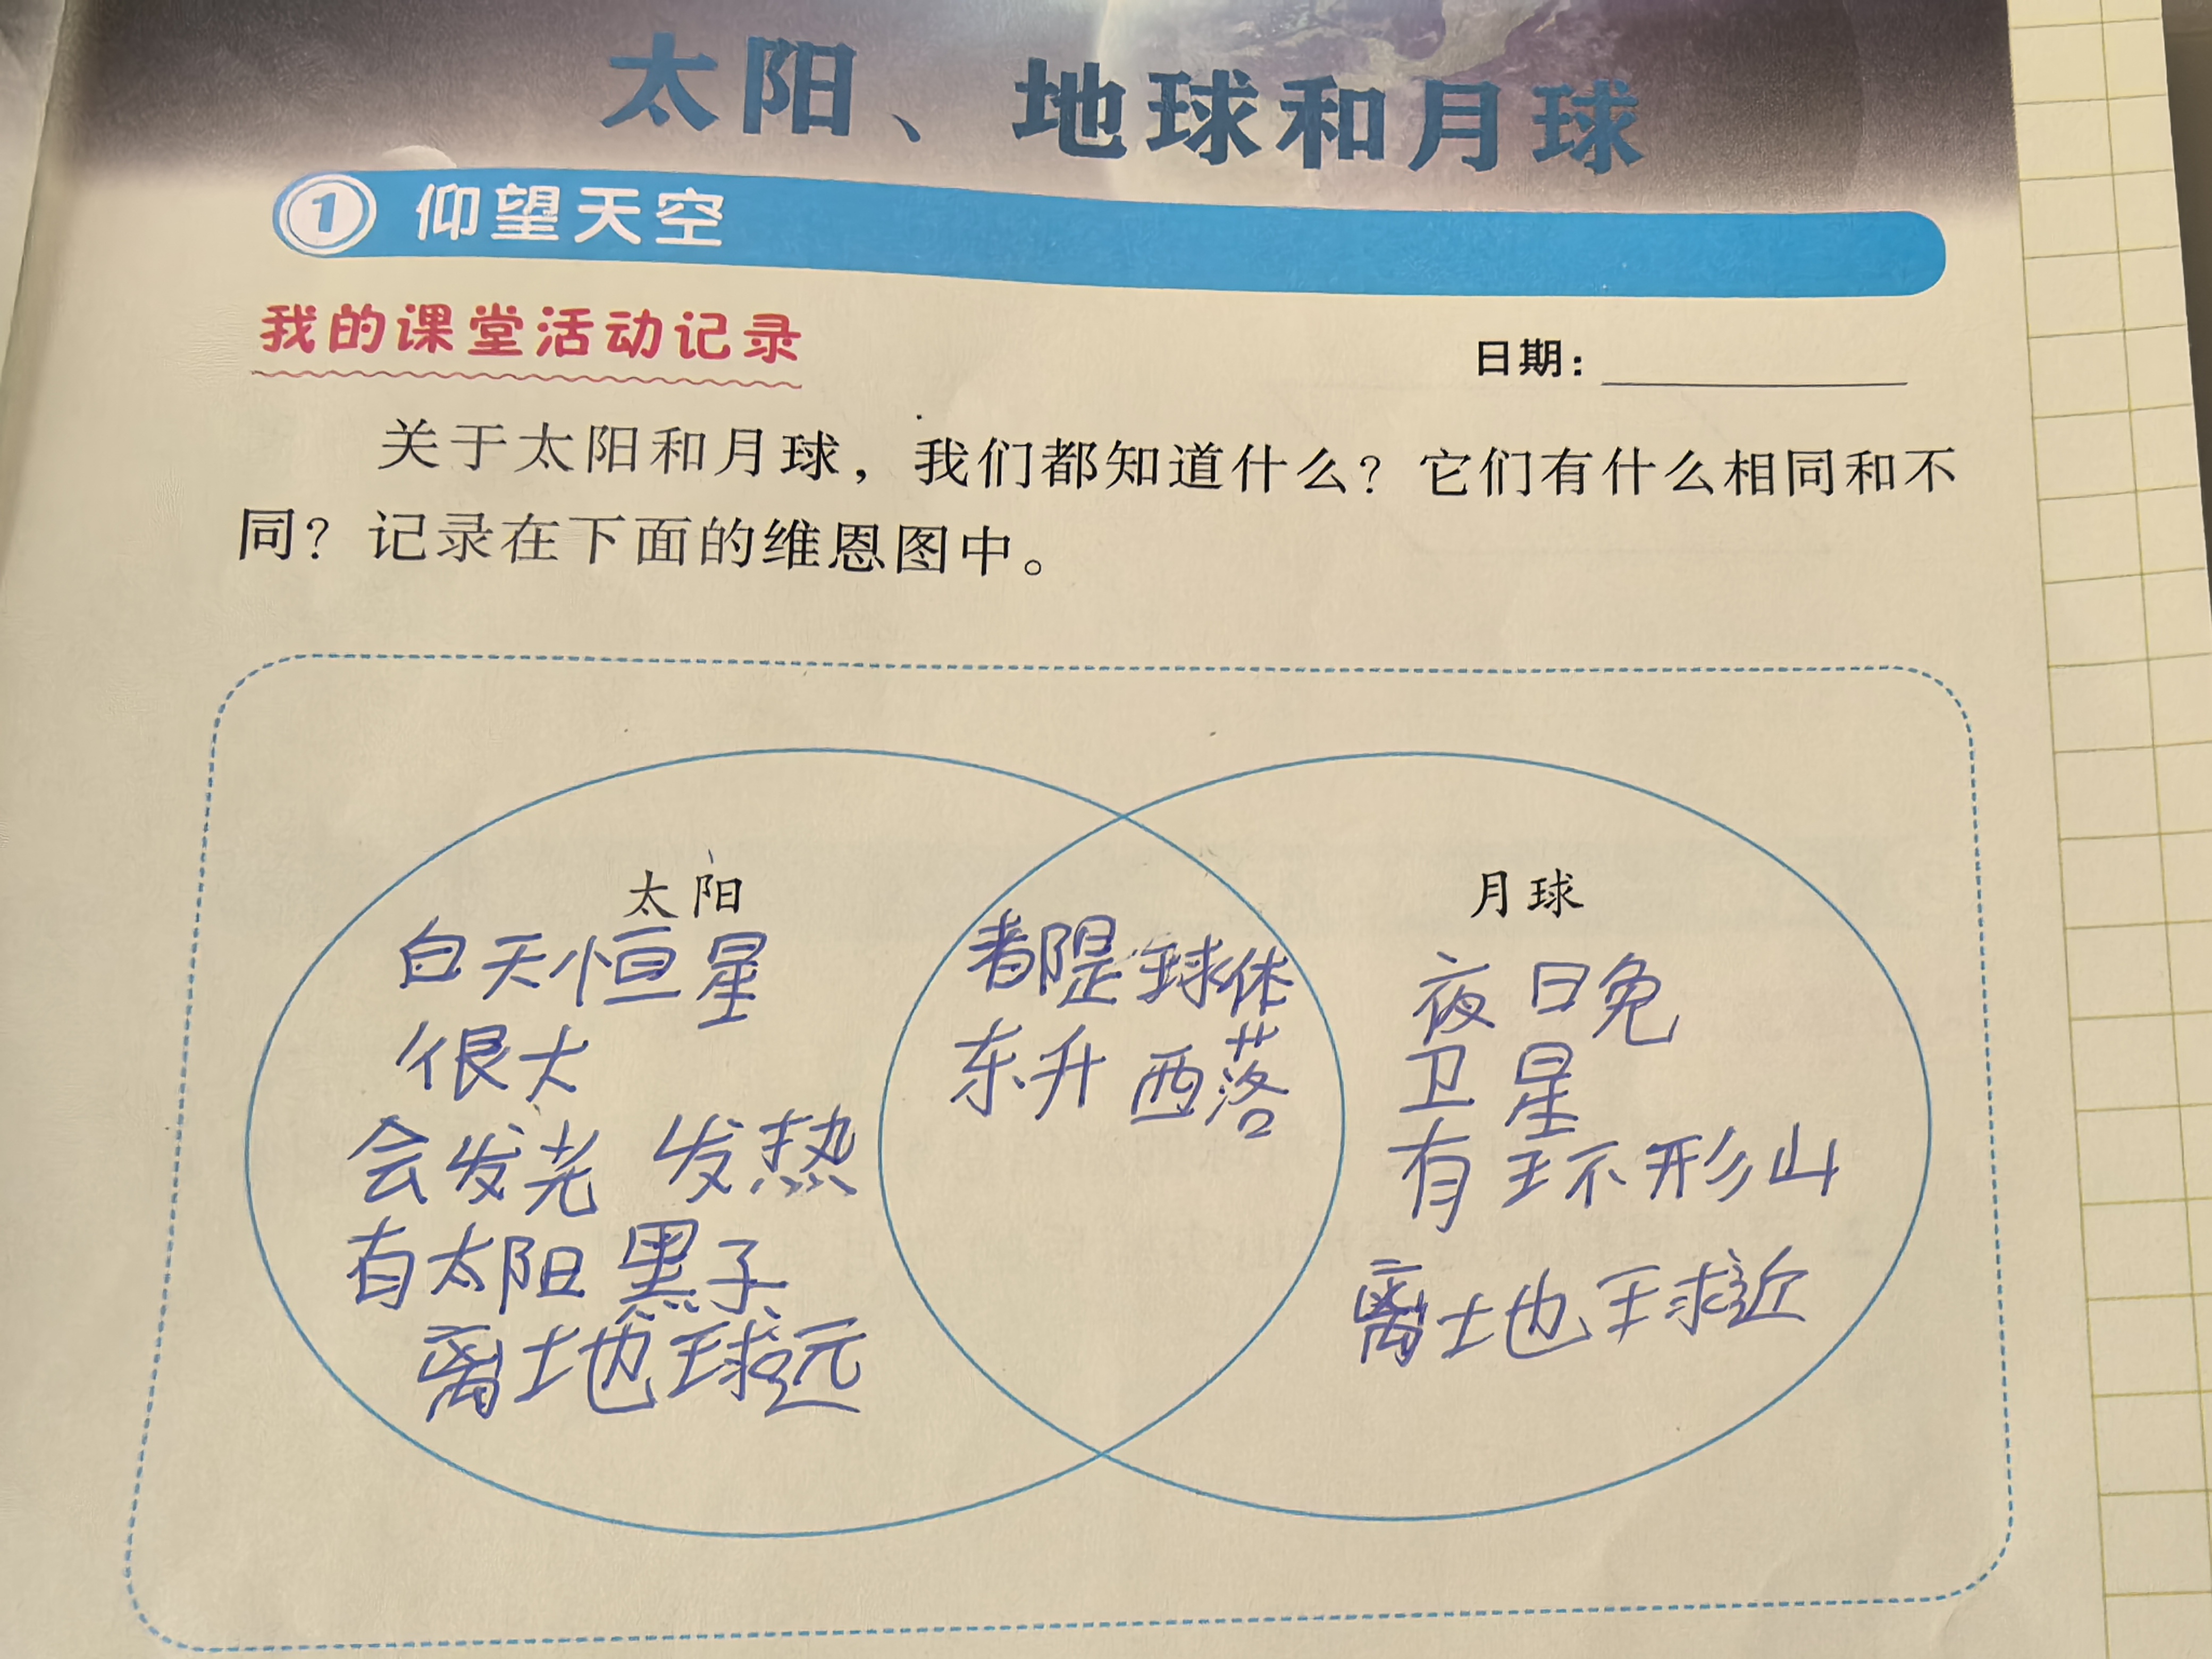 太阳、地球和月球
1 仰望天空
我的课堂活动记录
日期：
关于太阳和月球，我们都知道什么？它们有什么相同和不
同？记录在下面的维恩图中。
太阳
白天恒星
很大
会发光 发热
有太阳黑子
离地球远
都是球体
东升西落
月球
夜晚
卫星
有环形山
离地球近